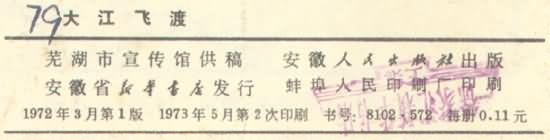 79
大江飞渡
芜湖市宣传馆供稿 安徽人民出版社出版
安徽省新华书店发行 蚌埠人民印刷厂印刷
1972年3月第1版 1973年5月第2次印刷 书号：8102·572 每册0.11元